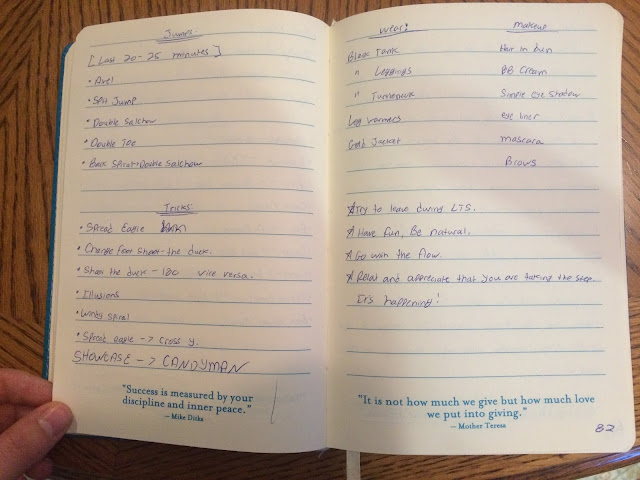 Jumps:
[Last 20-25 minutes]
• Axel
• Split Jump
• Double Salchow
• Double Toe
• Back Spiral→Double Salchow
Tricks:
• Spread Eagle
• Change foot Shoot-the duck.
• Shoot the duck - 180 vice versa.
• Illusions
• Windy Spiral
• Spread eagle -> cross y.
SHOWCASE -> CANDYMAN
"Success is measured by your
discipline and inner peace."
— Mike Ditka
Wear:
Black Tank
" Leggings
" Turtleneck
Leg warmers
Jacket
Makeup
Hair in bun
BB Cream
Simple eye Shadow
eye liner
mascara
Brows
☆Try to leave during LTS.
☆Have fun, Be natural.
☆Go with the flow.
☆Relax and appreciate that you are taking the step.
It's happening!
"It is not how much we give but how much love
we put into giving."
— Mother Teresa
82